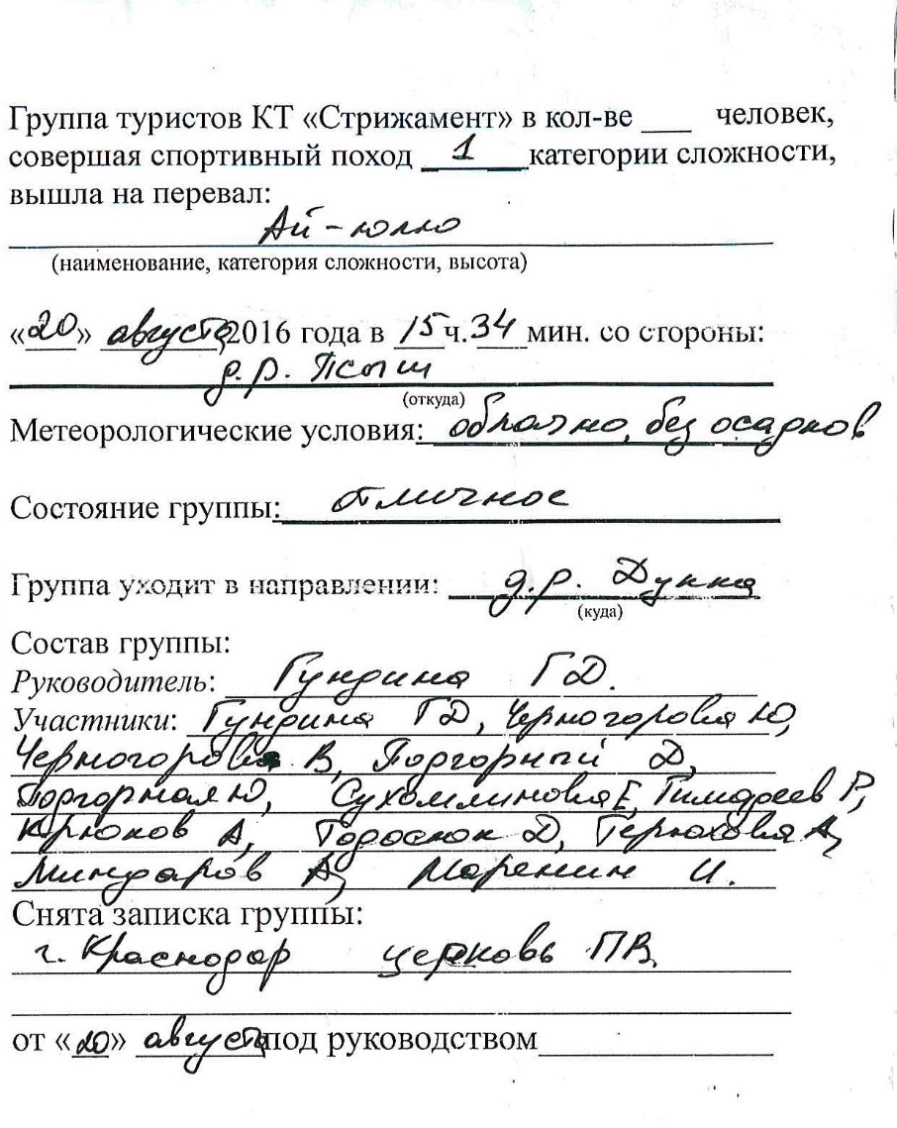 Группа туристов КТ «Стрижамент» в кол-ве ___ человек,
совершая спортивный поход 1 категории сложности,
вышла на перевал:
Ай-юлю
(наименование, категория сложности, высота)
«20» августа 2016 года в 15 ч. 34 мин. со стороны:
д.р. Псыш
(откуда)
Метеорологические условия: облачно, без осадков
Состояние группы: отличное
Группа уходит в направлении: д.р. Дукка
(куда)
Состав группы:
Руководитель: Гундина Г.Д.
Участники: Гундина ГД, Черногорова Ю,
Черногорова В, Подгорный Д,
Подгорная Ю, Сухомлинова Е, Тимофеев Р,
Крюков А, Д, Терюхова А,
Миндаров А, Маренин И.
Снята записка группы:
г. Краснодар церковь ПВ
от «20» августа под руководством